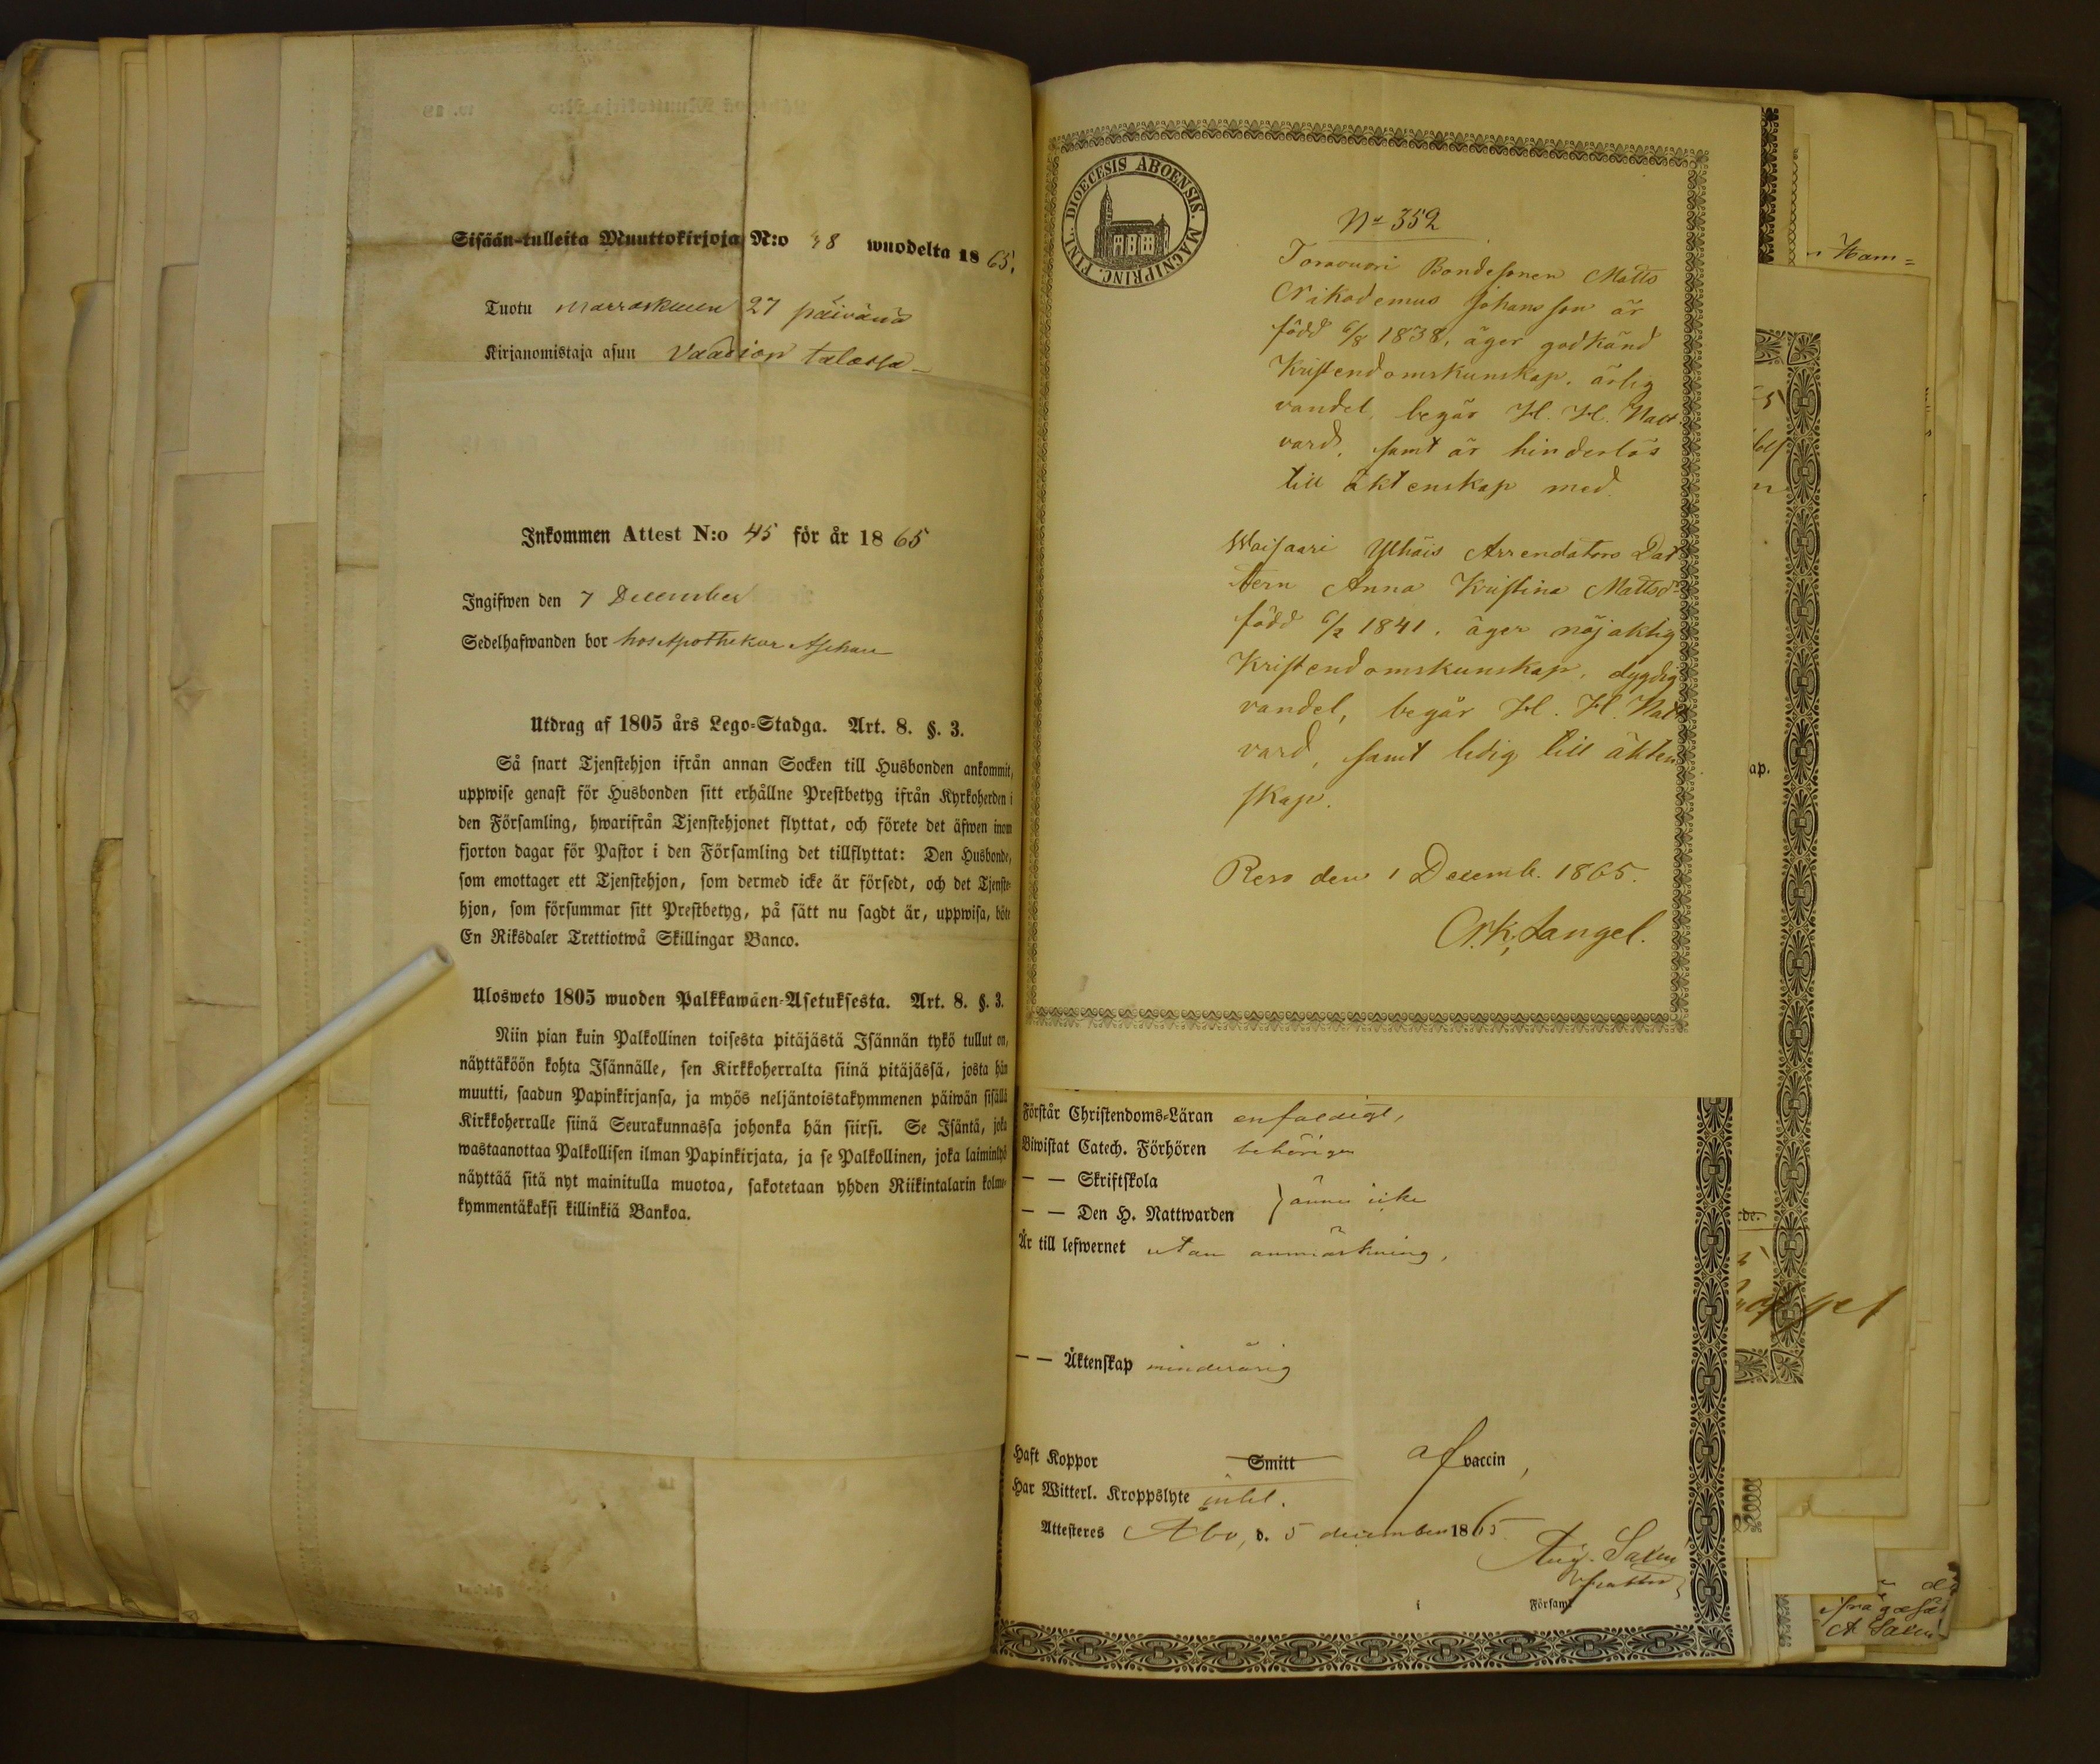 Sisään-tulleita Muuttokirjoja N:o 48 wuodelta 1865.
Tuotu marraskuun 27 päivänä
Kirjanomistaja asuu talossa
Inkommen Attest N:o 45 för år 1865
Ingifwen den 7 December
Sedelhafwanden bor hos Apothekar
Utdrag af 1805 års Lego-Stadga. Art. 8. §. 3.
Så snart Tjenstehjon ifrån annan Socken till Husbonden ankommit,
uppwise genast för Husbonden sitt erhållne Prestbetyg ifrån Kyrkoherden i
den Församling, hwarifrån Tjenstehjonet flyttat, och förete det äfwen inom
fjorton dagar för Pastor i den Församling det tillflyttat: Den Husbonde,
som emottager ett Tjenstehjon, som dermed icke är försedt, och det Tjenste-
hjon, som försummar sitt Prestbetyg, på sätt nu sagdt är, uppwisa, böte
En Riksdaler Trettiotwå Skillingar Banco.
Ulosweto 1805 wuoden Palkkawäen-Asetuksesta. Art. 8. §. 3.
Niin pian kuin Palkollinen toisesta pitäjästä Isännän tykö tullut on,
näyttäköön kohta Isännälle, sen Kirkkoherralta siinä pitäjässä, josta hän
muutti, saadun Papinkirjansa, ja myös neljäntoistakymmenen päiwän sisällä
Kirkkoherralle siinä Seurakunnassa johonka hän siirsi. Se Isäntä, joka
wastaanottaa Palkollisen ilman Papinkirjata, ja se Palkollinen, joka laiminlyö
näyttää sitä nyt mainitulla muotoa, sakotetaan yhden Riikintalarin kolme-
kymmentäkaksi killinkiä Bankoa.
DIOECESIS ABOENSIS. MAGNI PRINC. FINL.
No 352
Torovuori Bondesonen Matts
Nikodemus Johansson är
född 6/8 1838, äger godkänd
Kristendomskunskap, ärlig
vandel, begår H. H. Natt
vard, samt är hinderlös
till äktenskap med
Waisaari Ylhäis Arrendators Dot
tern Anna Kristina Mattsdr
född 6/2 1841, äger nöjaktig
Kristendomskunskap, dygdig
vandel, begår H. H. Natt
vard, samt ledig till äkten
skap.
Reso den 1 Decemb. 1865.
Langel.
Förstår Christendoms-Läran enfaldigt,
Biwistat Catech. Förhören behörigen
— — Skriftskola
— — Den H. Nattwarden } ännu icke
Är till lefwernet utan anmärkning,
— — Äktenskap minderårig
Haft Koppor Smitt af vaccin,
Har Witterl. Kroppslyte intet.
Attesteres Åbo, d. 5 december 1865
Aug. Salen
i Församl